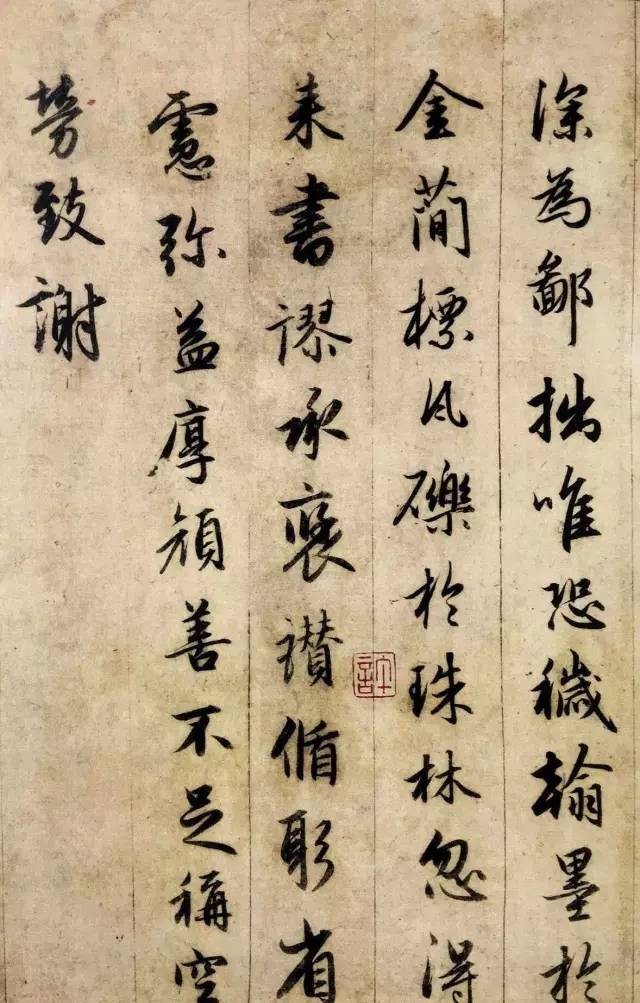 深為鄙拙唯恐穢翰墨於
金簡標瓦礫於珠林忽得
来書謬承褒讃循躬省
慮弥益厚顔善不足稱空
勞致謝